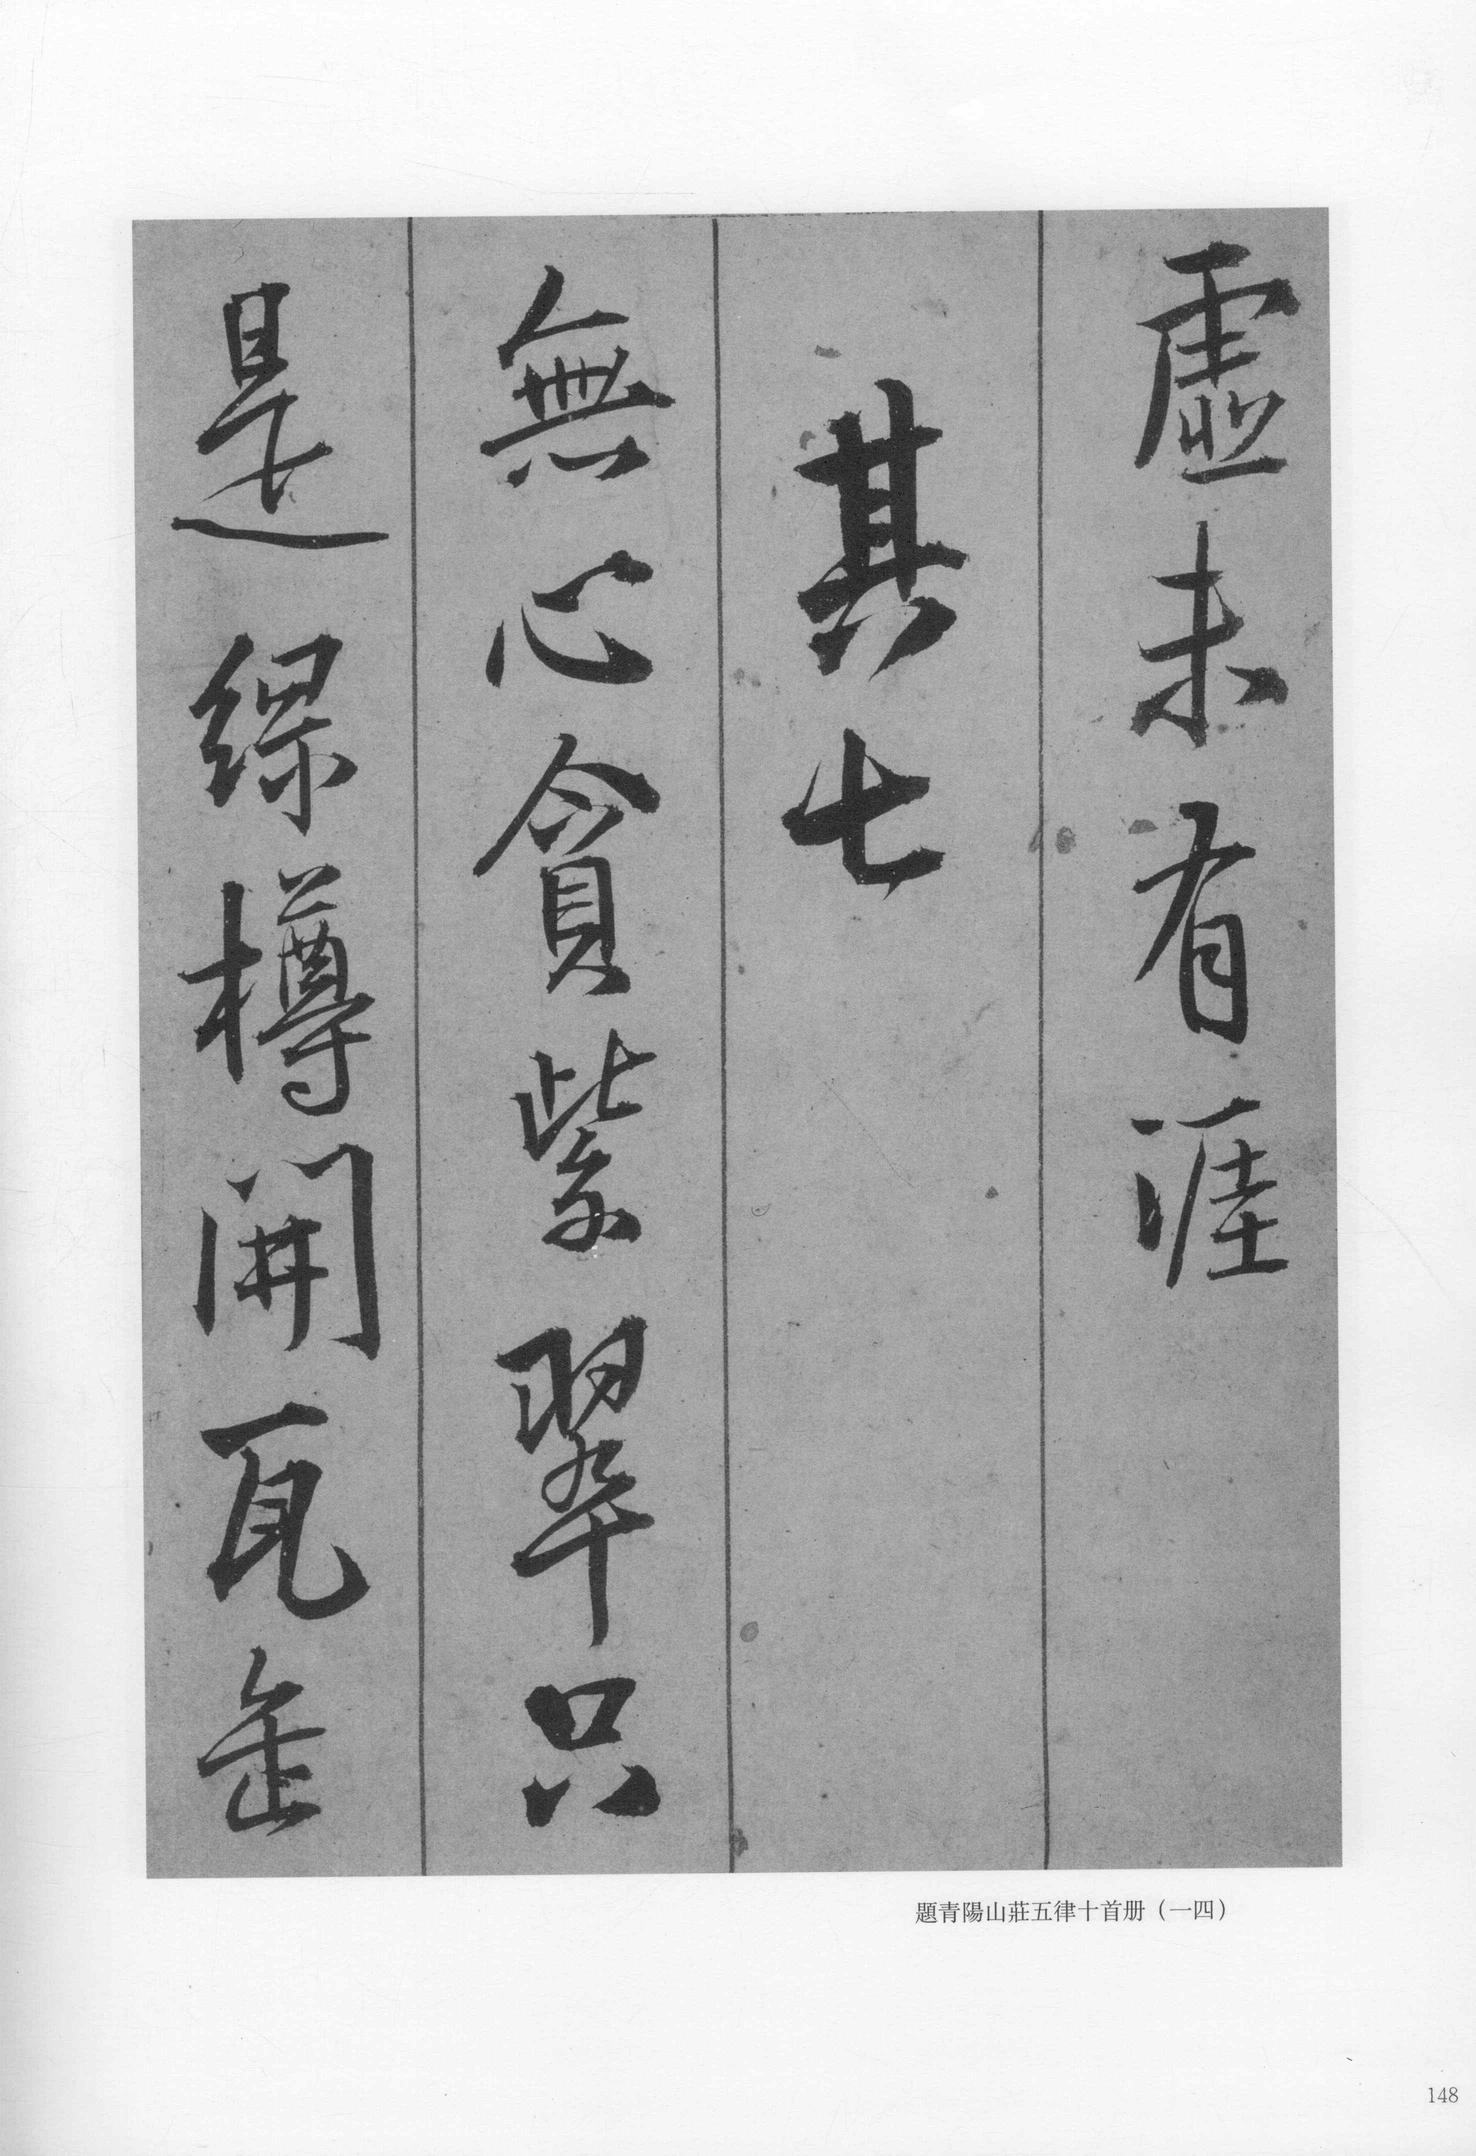 虛未有涯
其七
無心貪紫翠只
是緣樽開瓦缶
題青陽山莊五律十首册（一四）
148